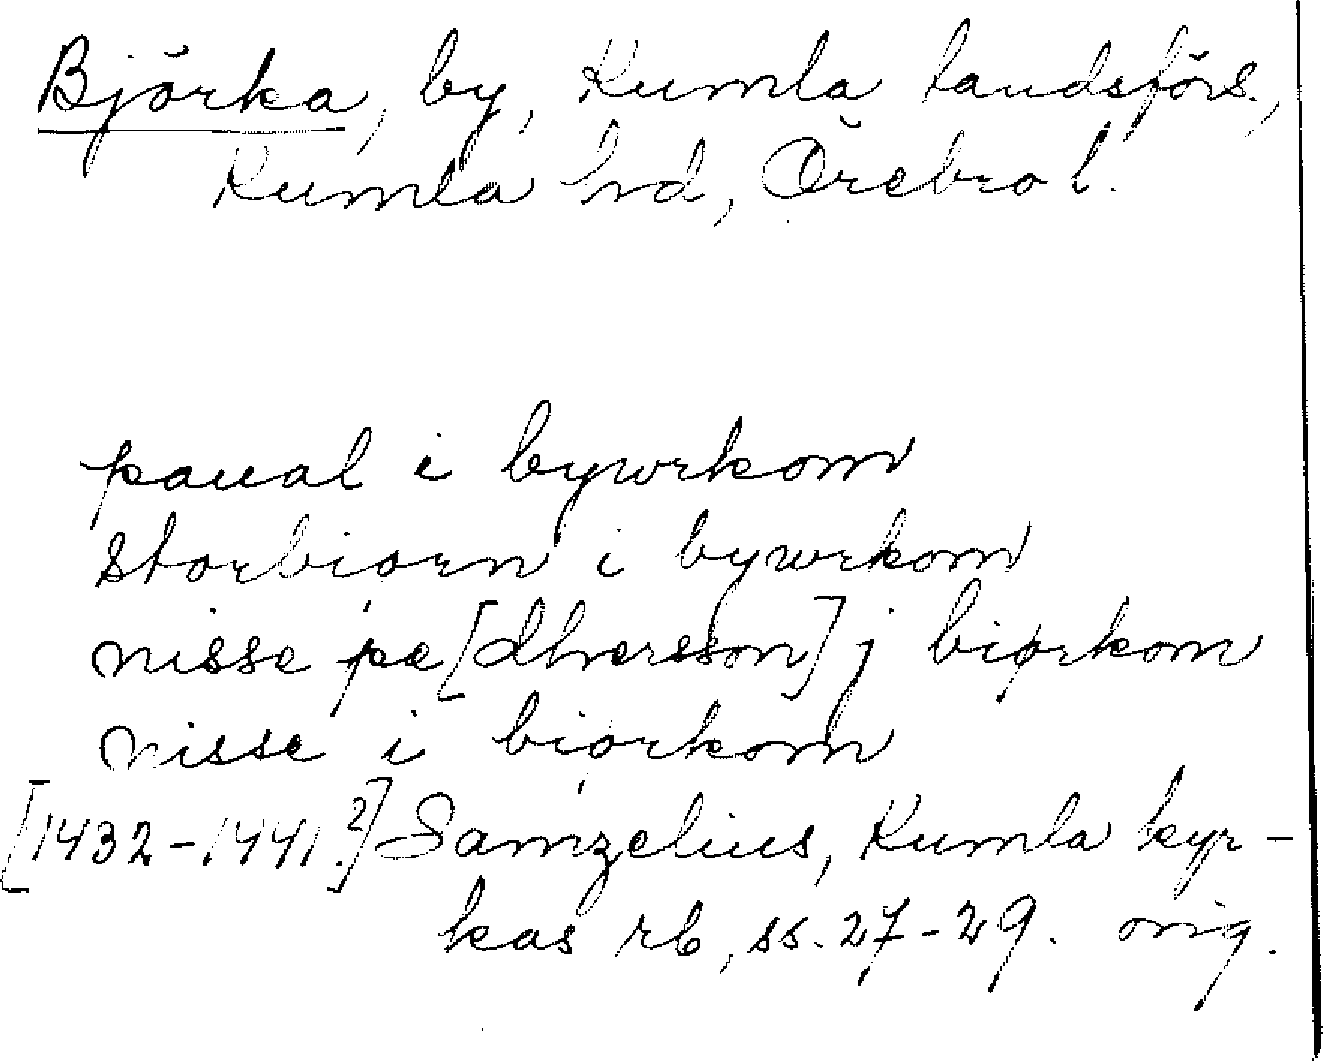 Björka, by, Kumla landsförs.,
Kumla hd, Örebro l.
paual i bywrkom
storbiorn i bywrkom
nisse pæ[dhersson] j biørkom
nisse i biørkom
[1432-1441?] Samzelius, Kumla kyr-
kas rb, ss. 27-29. orig.